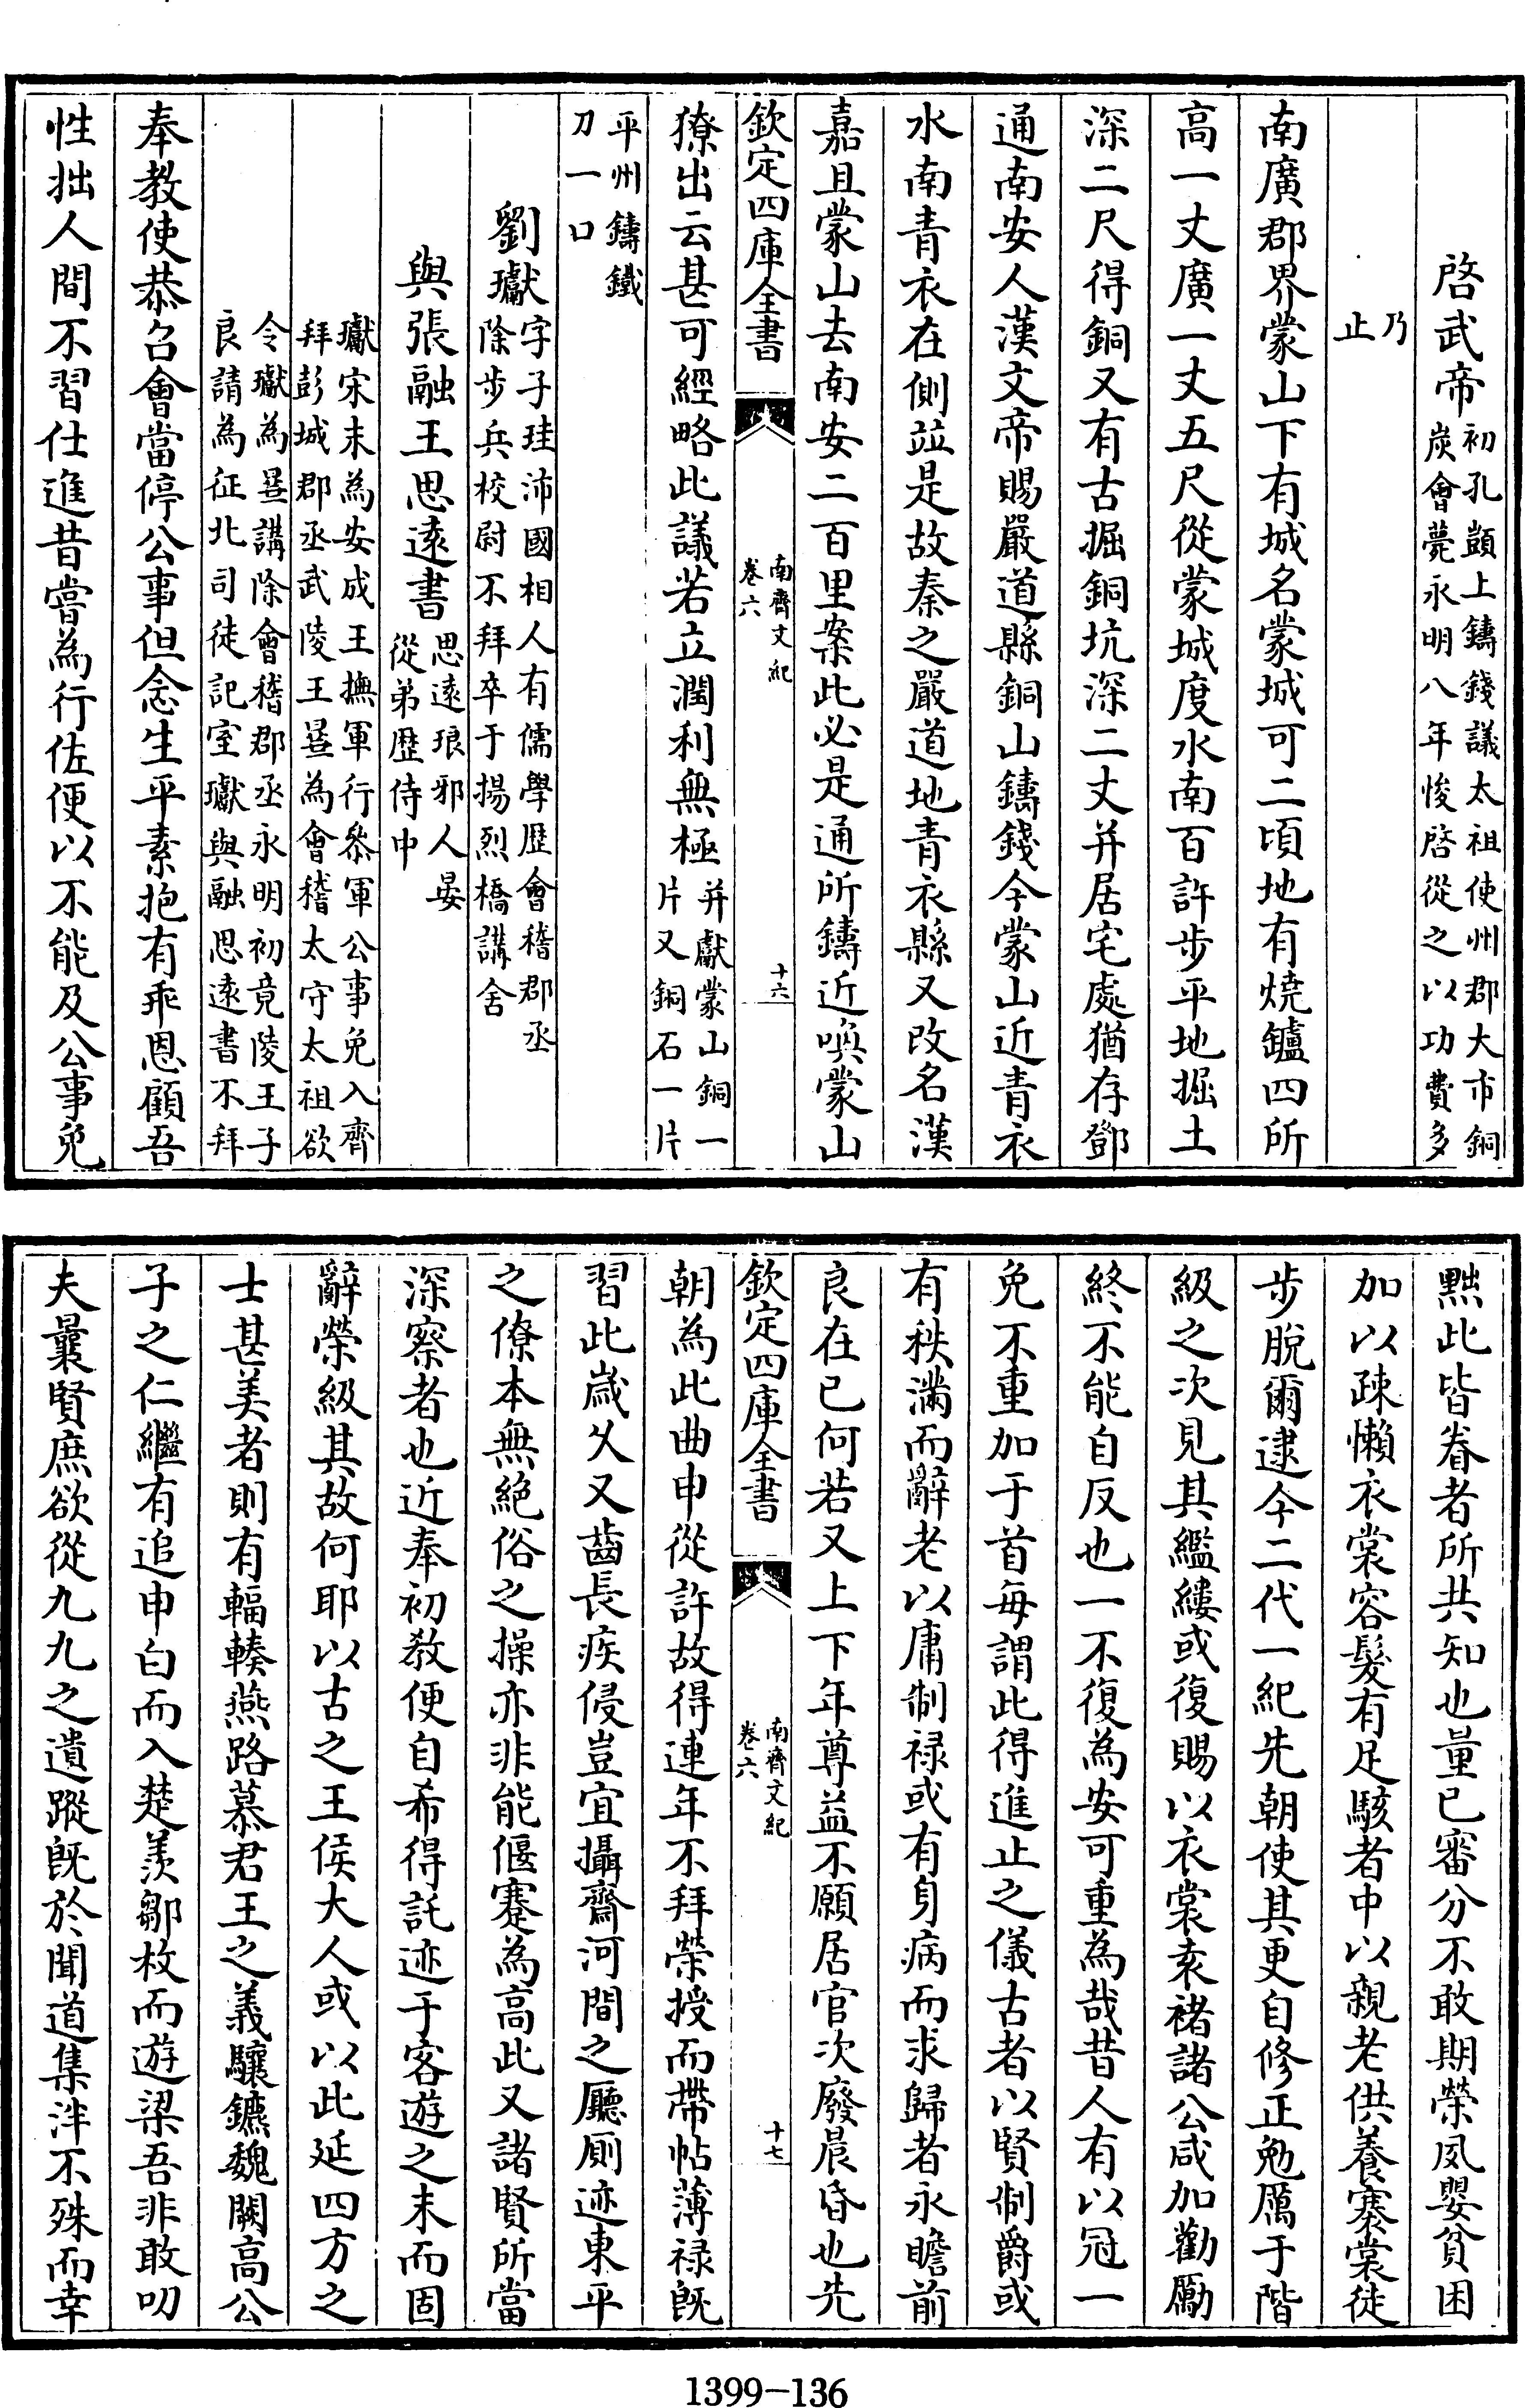 啓武帝初孔顗上鑄錢議太祖使州郡大市銅炭會薨永明八年悛啓從之以功費多
乃止
南廣郡界蒙山下有城名蒙城可二頃地有燒鑪四所
高一丈廣一丈五尺從蒙城度水南百許步平地掘土
深二尺得銅又有古掘銅坑深二丈并居宅處猶存鄧
通南安人漢文帝賜嚴道縣銅山鑄錢今蒙山近青衣
水南青衣在側竝是故秦之嚴道地青衣縣又改名漢
嘉且蒙山去南安二百里案此必是通所鑄近喚蒙山
欽定四庫全書 南齊文紀卷六 十六
獠出云甚可經略此議若立潤利無極并獻蒙山銅一片又銅石一片
平州鑄鐵刀一口
劉瓛字子珪沛國相人有儒學歷會稽郡丞除步兵校尉不拜卒于揚烈橋講舍
與張融王思遠書思遠琅邪人晏從弟歷侍中
瓛宋末為安成王撫軍行叅軍公事免入齊拜彭城郡丞武陵王㬂為會稽太守太祖欲
令瓛為㬂講除會稽郡丞永明初竟陵王子良請為征北司徒記室瓛與融思遠書不拜
奉教使恭召會當停公事但念生平素抱有乖恩顧吾
性拙人間不習仕進昔嘗為行佐便以不能及公事免
黜此皆眷者所共知也量已審分不敢期榮夙嬰貧困
加以疎懶衣裳容髮有足駭者中以親老供養褰裳徒
步脫爾逮今二代一紀先朝使其更自修正勉厲于階
級之次見其繿縷或復賜以衣裳袁褚諸公咸加勸勵
終不能自反也一不復為安可重為哉昔人有以冠一
免不重加于首每謂此得進止之儀古者以賢制爵或
有秩滿而辭老以庸制祿或有身病而求歸者永瞻前
良在已何若又上下年尊益不願居官次廢晨昏也先
欽定四庫全書 南齊文紀卷六 十七
朝為此曲申從許故得連年不拜榮授而帶帖薄祿旣
習此歲久又齒長疾侵豈宜攝齋河間之廳厠迹東平
之僚本無絕俗之操亦非能偃蹇為高此又諸賢所當
深察者也近奉初教便自希得託迹于客遊之末而固
辭榮級其故何耶以古之王侯大人或以此延四方之
士甚美者則有輻輳燕路慕君王之義驤鑣魏闕高公
子之仁繼有追申白而入楚羨鄒枚而遊梁吾非敢叨
夫曩賢庶欲從九九之遺蹤旣於聞道集泮不殊而幸
1399-136